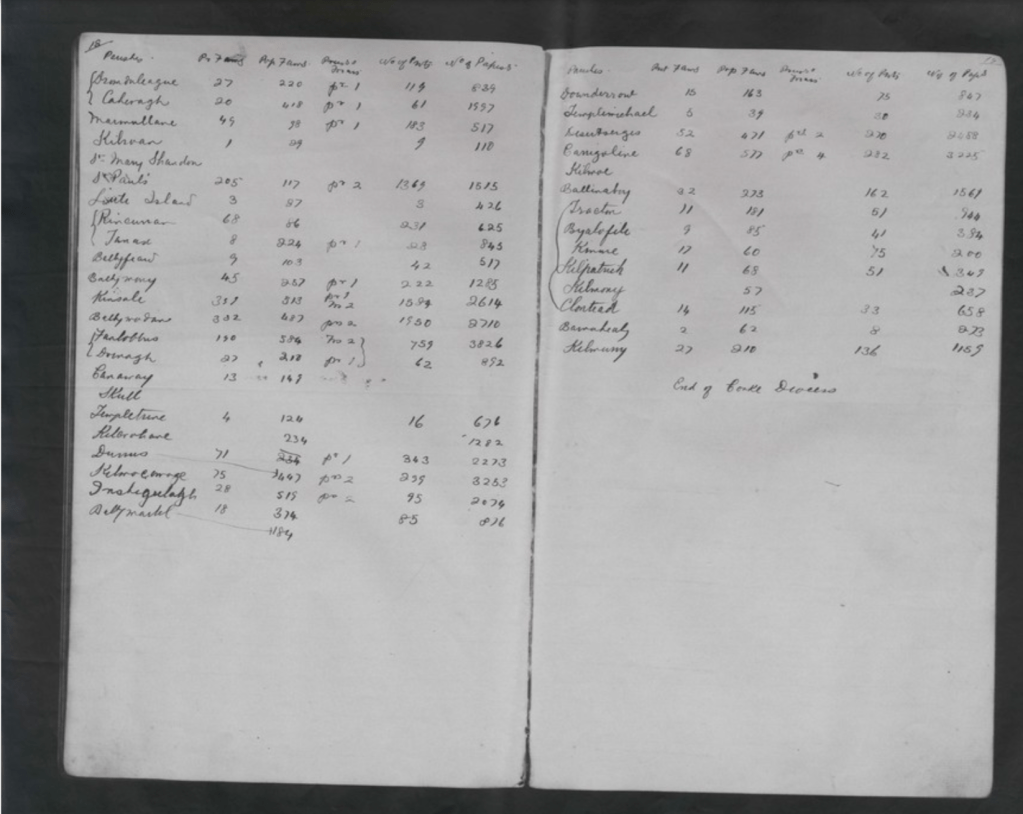 18
Parishes Pr Fams Pop Fams Priests Mass No of Prots No of Papists
Dromdaleague 27 220 pr 1 119 839
Caheragh 20 418 pr 1 61 1997
Marmullane 49 98 pr 1 183 517
Kilroan 1 29 9 110
St Mary Shandon
St Pauls 205 117 pr 2 1369 1515
Little Island 3 87 3 426
Rincurran 68 86 231 625
Tanax 8 224 pr 1 28 843
Ballyfeard 9 103 42 517
Ballymony 45 257 pr 1 222 1285
Kinsale 513 pr 1 m 2 1594 2614
Ballymodan 332 487 prs 2 1930 2710
Fanlobbus 190 584 m 2 759 3826
Drinagh 27 210 pr 1 62 892
Canaway 13 149
Skull
Templetrine 4 124 16 676
Kilcrohane 234 1282
Durrus 71 234 pr 1 343 2273
Kilmocomoge 75 447 prs 2 299 3253
Inshigeelagh 28 519 prs 2 95 2074
Ballymartel 18 374 85 876
1184
Parishes Prot Fams Pop Fams Priests Mass No of Prots No of Papts
Downderrow 15 163 75 847
Templemichael 5 39 30 234
Desertserges 52 471 prt 2 270 2088
Carrigaline 68 577 prt 4 232 3225
Kilroe
Ballinaboy 32 273 162 1561
Tractor 11 181 51 944
Byalofile 9 85 41 394
Kinure 17 60 75 200
Kilpatrick 11 68 51 349
Kilmoney 57 237
Clontead 14 115 33 658
Barnahealy 2 62 8 273
Kilmurry 27 210 136 1159
End of Corke Diocess